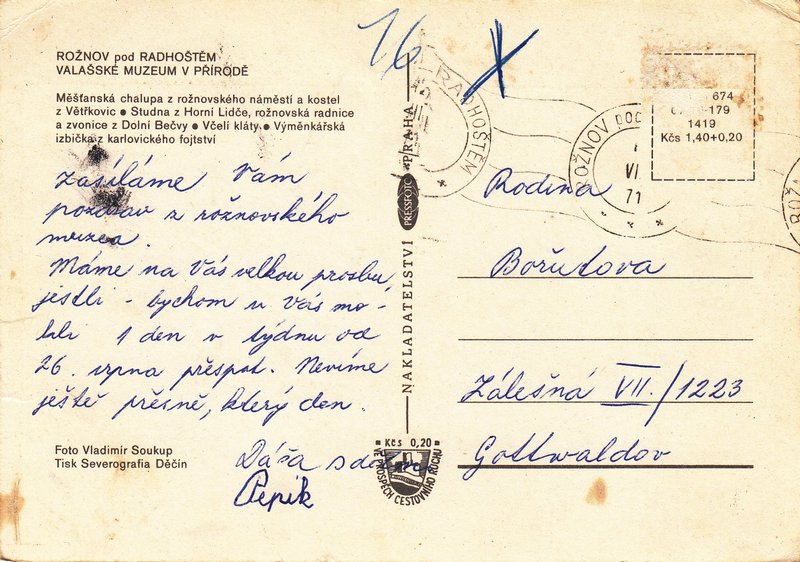 16 X
ROŽNOV pod RADHOŠTĚM
VALAŠSKÉ MUZEUM V PŘÍRODĚ
Měšťanská chalupa z rožnovského náměstí a kostel
z Větřkovic ● Studna z Horní Lidče, rožnovská radnice
a zvonice z Dolní Bečvy ● Včelí kláty ● Výměnkářská
izbička z karlovického fojtství
Zasíláme Vám
pozdrav z rožnovského
muzea.
Máme na Vás velkou prosbu,
jestli - bychom u Vás mo-
hli 1 den v týdnu od
26. srpna přespat. Nevíme
ještě přesně, který den.
Dáša s
Pepík
Foto Vladimír Soukup
Tisk Severografia Děčín
NAKLADATELSTVÍ PRESSFOTO PRAHA
Kčs 0,20
VE PROSPĚCH CESTOVNÍHO RUCHU
RADHOŠTĚM
ROŽNOV POD
VI
71
ROŽ
674
179
1419
Kčs 1,40+0,20
Rodina
Bořutova
Zálešná VII./1223
Gottwaldov